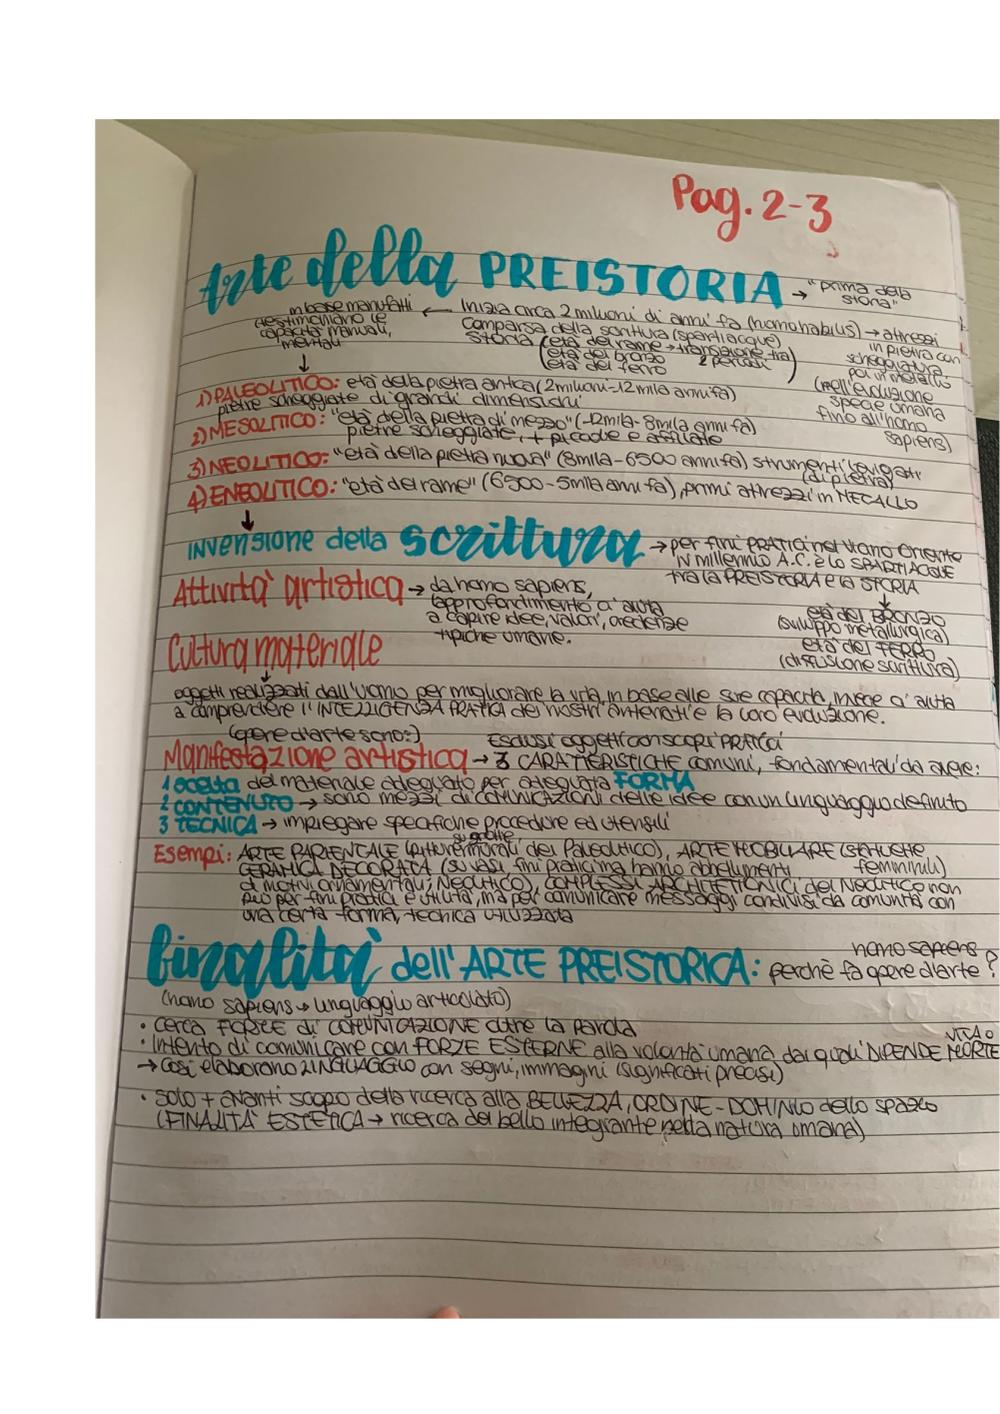 Pag. 2-3
Arte della PREISTORIA → "prima della
storia"
in base manufatti ← Inizia circa 2 milioni di anni fa (homo habilis) → attrezzi
testimoniano le
capacità manuali,
mentali
comparsa della scrittura (spartiacque)
storia (età del rame → transazione tra
età del bronzo 2 periodi
età del ferro )
in pietra con
scheggiatura
poi in metallo
(nell'evoluzione
specie umana
fino all'homo
sapiens)
↓
1) PALEOLITICO: età della pietra antica (2milioni-12mila anni fa)
pietre scheggiate di grandi dimensioni
2) MESOLITICO: "età della pietra di mezzo" (-12mila-8mila anni fa)
pietre scheggiate, + piccole e affilate
3) NEOLITICO: "età della pietra nuova" (8mila-6500 anni fa) strumenti levigati
(di pietra)
4) ENEOLITICO: "età del rame" (6500-5mila anni fa), primi attrezzi in METALLO
↓
INVENSIONE della scrittura → per fini PRATICI nel vicino Oriente
IV millennio A.C. è lo SPARTIACQUE
tra la PREISTORIA e la STORIA
Attività artistica → da homo sapiens,
l'approfondimento ci aiuta
a capire idee, valori, credenze
tipiche umane.
↓
età del BRONZO
(sviluppo metallurgica)
età del FERRO
(diffusione scrittura)
Cultura materiale
↓
oggetti realizzati dall'uomo per migliorare la vita, in base alle sue capacità, invece ci aiuta
a comprendere l'INTELLIGENZA PRATICA dei nostri antenati e la loro evoluzione.
(opere d'arte sono:) Esclusi oggetti con scopi PRATICI
Manifestazione artistica → 3 CARATTERISTICHE comuni, fondamentali da avere:
1 scelta del materiale adeguato per adeguata FORMA
2 CONTENUTO → sono mezzi di COMUNICAZIONI delle idee con un linguaggio definito
3 TECNICA → impiegare specifiche procedure ed utensili
su grotte
Esempi: ARTE PARIENTALE (pitture murali del Paleolitico), ARTE MOBILIARE (statuette
femminili)
CERAMICA DECORATA (su vasi, fini pratici ma hanno abbellimenti
di motivi ornamentali; Neolitico), COMPLESSI ARCHITETTONICI del Neolitico non
più per fini pratici e utilità, ma per comunicare messaggi condivisi da comunità con
una certa forma, tecnica utilizzata
Finalità dell'ARTE PREISTORICA: homo sapiens
perchè fa opere d'arte?
(homo sapiens → linguaggio articolato)
• cerca FORME di COMUNICAZIONE oltre la parola
• Intento di comunicare con FORZE ESTERNE alla volontà umana dai quali DIPENDE VITA O
MORTE
→ così elaborano LINGUAGGIO con segni, immagini (significati precisi)
• solo + avanti scopo della ricerca alla BELLEZZA, ORDINE - DOMINIO dello spazio
(FINALITÀ ESTETICA → ricerca del bello integrante nella natura umana)